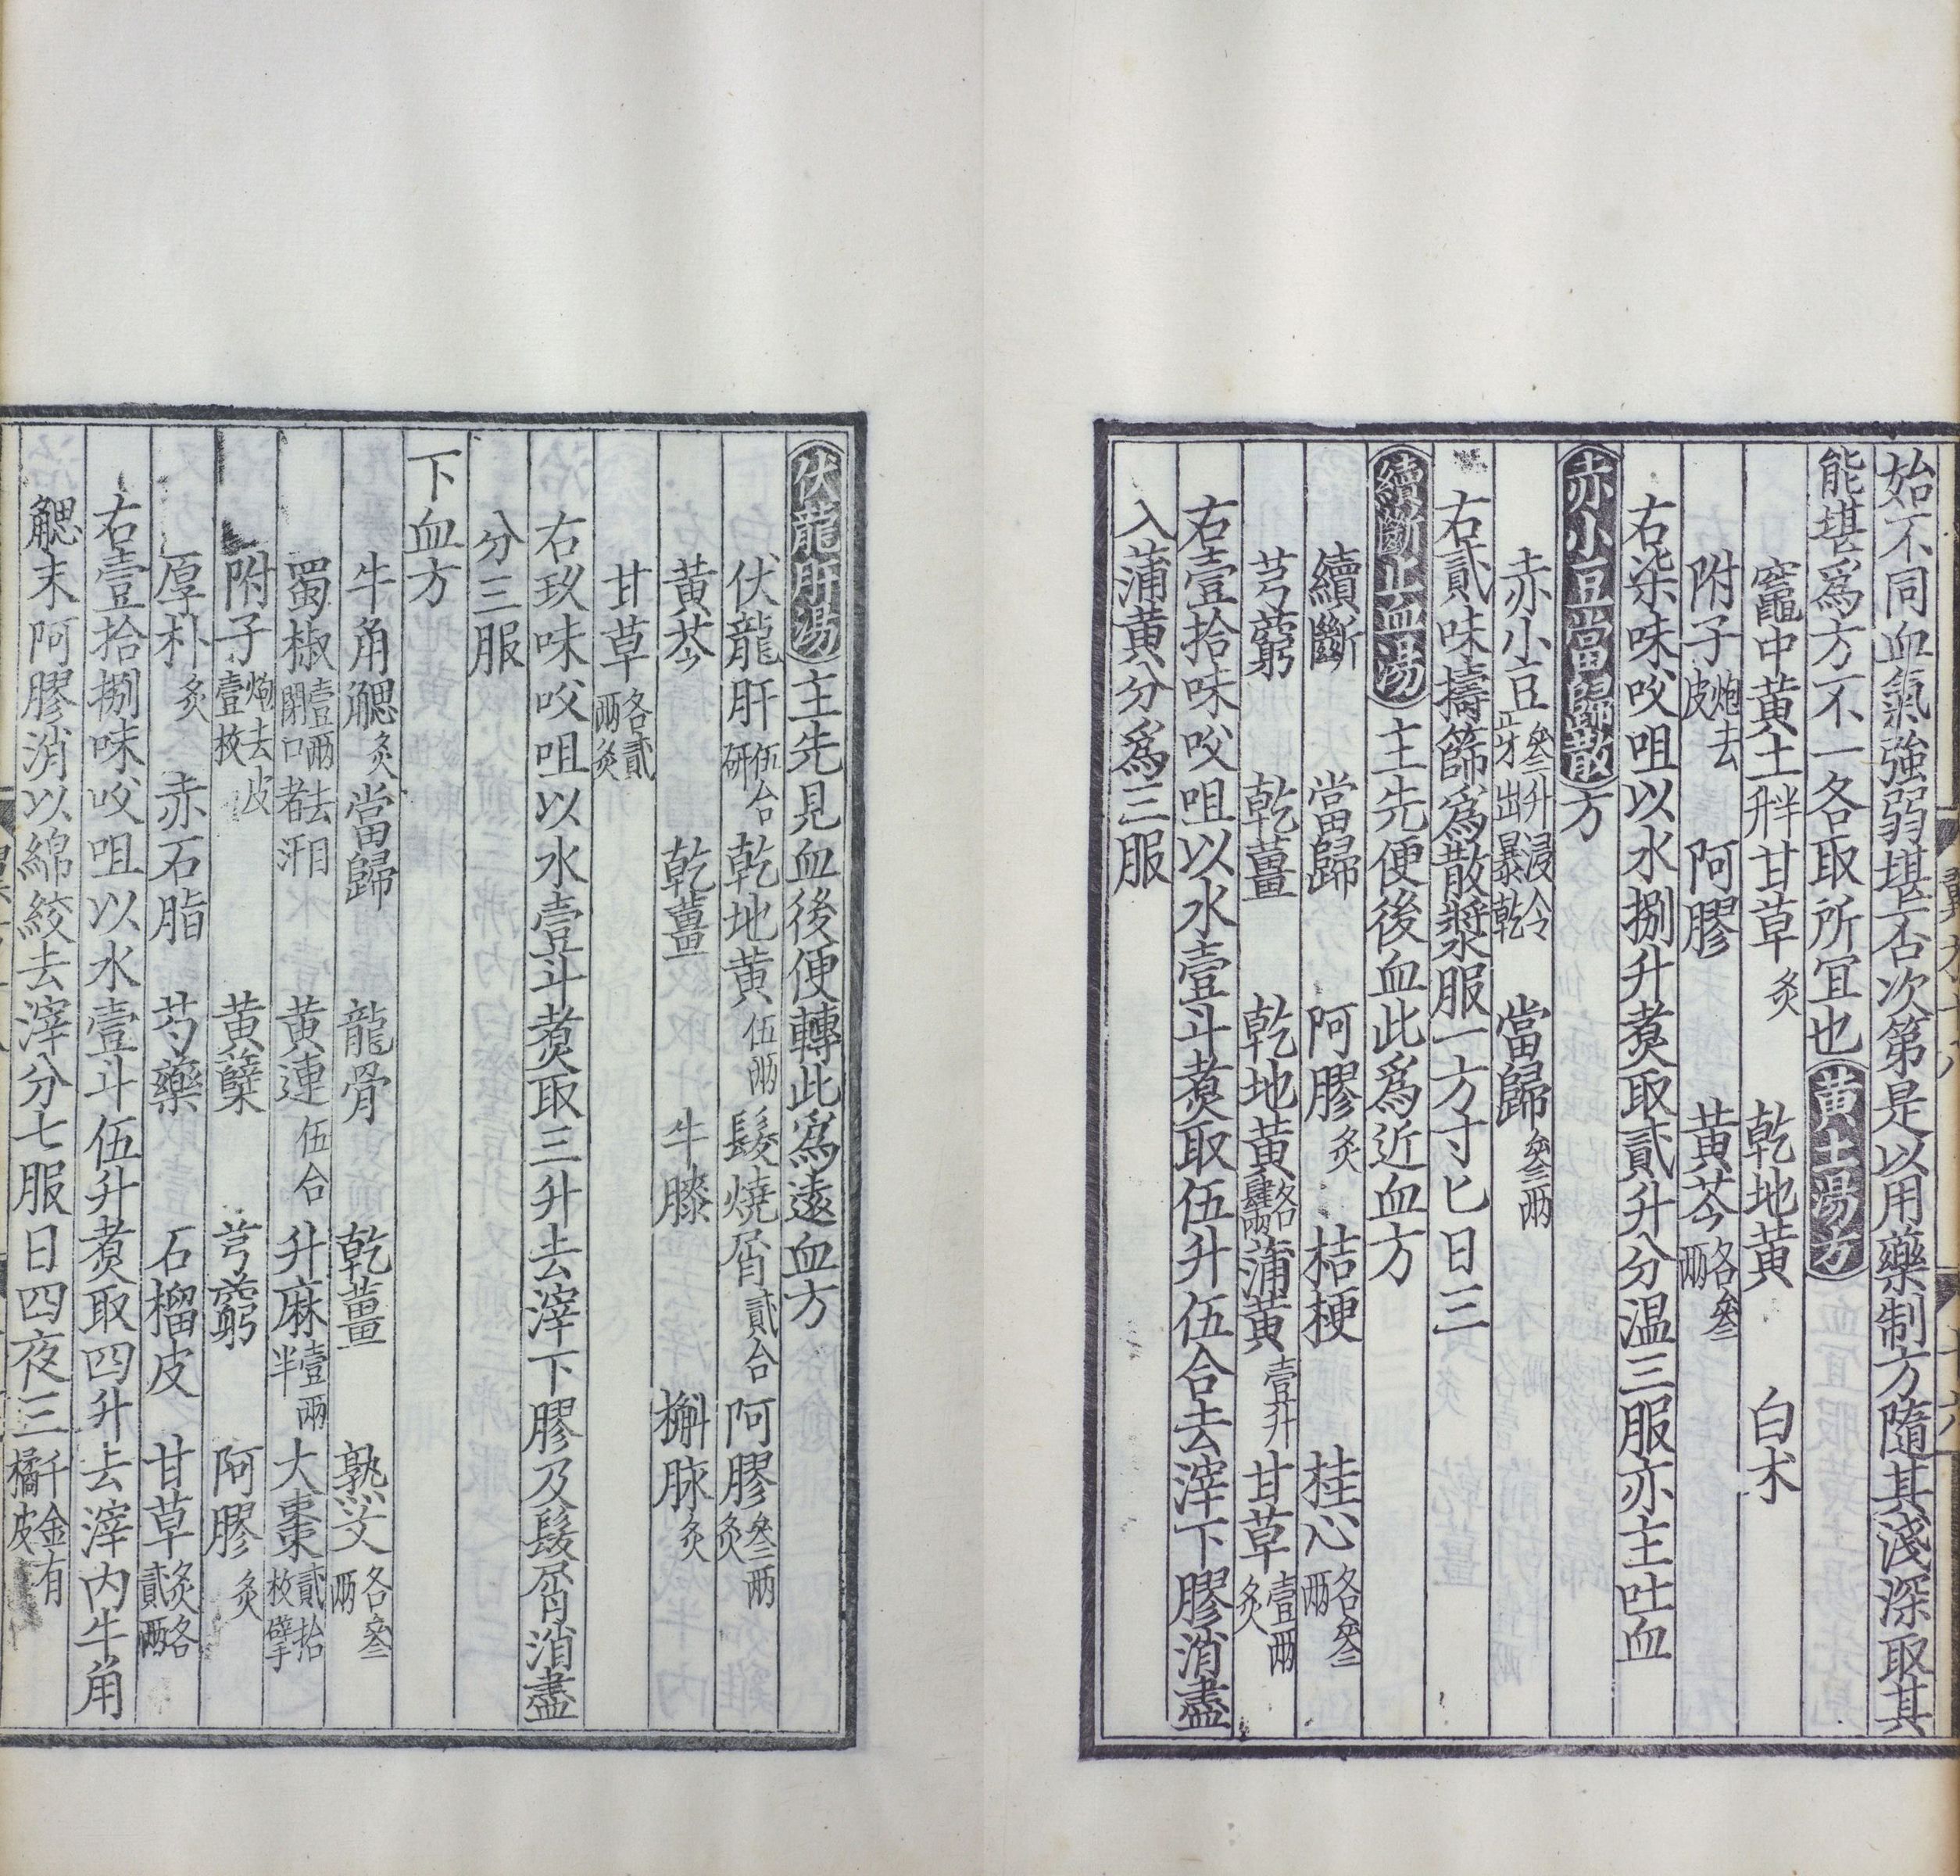 始不同血氣強弱堪否次第是以用藥制方隨其淺深取其
能堪爲方不一各取所宜也黄土湯方
竈中黄土半升甘草炙 乾地黄 白朮
附子炮去皮 阿膠 黄芩各叄兩
右柒味㕮咀以水捌升煑取貳升分温三服亦主吐血
赤小豆當歸散方
赤小豆叄升浸令牙出暴乾 當歸叄兩
右貳味擣篩爲散漿服一方寸匕日三
續斷止血湯主先便後血此爲近血方
續斷 當歸 阿膠炙 桔梗 桂心各叄兩
芎藭 乾薑 乾地黄各肆兩蒲黄壹升甘草壹兩炙
右壹拾味㕮咀以水壹斗煑取伍升伍合去滓下膠消盡
入蒲黄分爲三服
伏龍肝湯主先見血後便轉此爲遠血方
伏龍肝伍合研乾地黄伍兩髮燒屑貳合阿膠叄兩炙
黄芩 乾薑 牛膝 槲脉炙
甘草各貳兩炙
右玖味㕮咀以水壹斗煑取三升去滓下膠及髮屑消盡
分三服
下血方
牛角䚡炙當歸 龍骨 乾薑 熟艾各叄兩
蜀椒壹兩去閉口者汗 黄連伍合升麻壹兩半大棗貳拾枚擘
附子炮去皮壹枚 黄蘗 芎藭 阿膠炙
厚朴炙 赤石脂 芍藥 石榴皮 甘草炙各貳兩
右壹拾捌味㕮咀以水壹斗伍升煑取四升去滓内牛角
䚡末阿膠消以綿絞去滓分七服日四夜三千金有橘皮